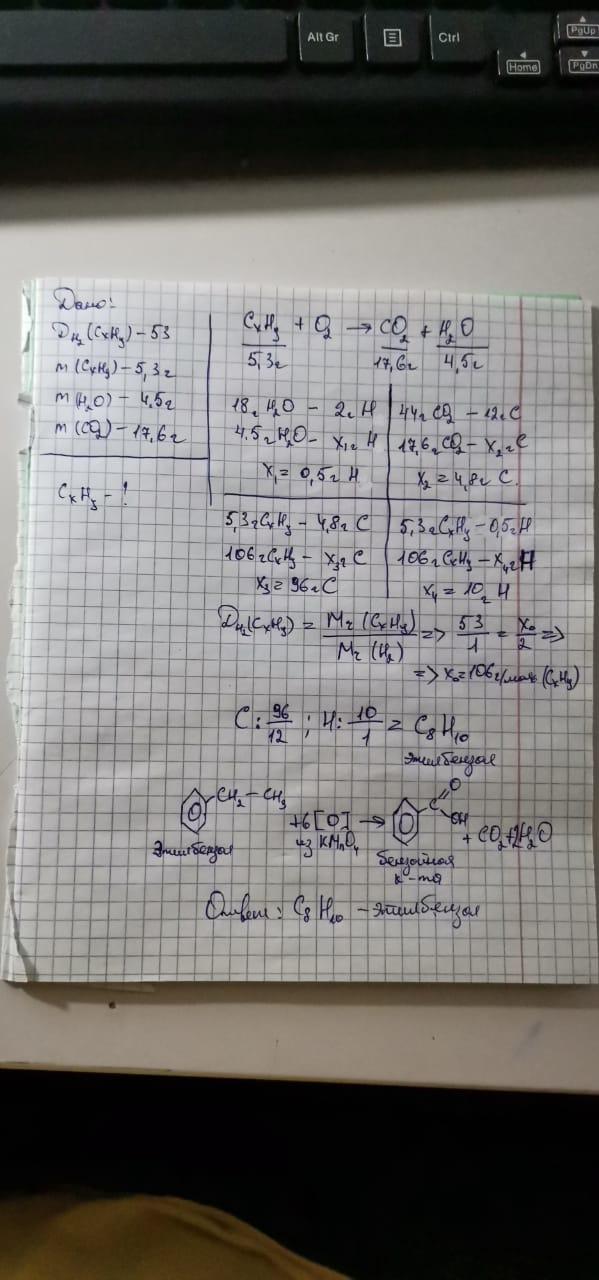 Alt Gr
Ctrl
PgUp
Home
PgDn
Дано:
D_H₂(CxHy) – 53
m(CxHy) – 5,3г
m(H₂O) – 4,5г
m(CO₂) – 17,6г
CxHy – ?
CxHy + O₂ → CO₂ + H₂O
5,3г 17,6г 4,5г
18г H₂O – 2г H
4,5г H₂O – x₁г H
x₁ = 0,5г H
44г CO₂ – 12г C
17,6г CO₂ – x₂г C
x₂ = 4,8г C.
5,3г CxHy – 4,8г C
106г CxHy – x₃г C
x₃ = 96г C
5,3г CxHy – 0,5г H
106г CxHy – x₄г H
x₄ = 10г H
D_H₂(CxHy) = Mr(CxHy)/Mr(H₂) => 53/1 = x₀/2 =>
=> x₀ = 106г/моль (CxHy)
C: 96/12 ; H: 10/1 = C₈H₁₀
этилбензол
CH₂–CH₃
+6[O] →
из KMnO₄
C O OH
+ CO₂ + 2H₂O
Этилбензол
бензойная
к-та
Ответ: C₈H₁₀ – этилбензол